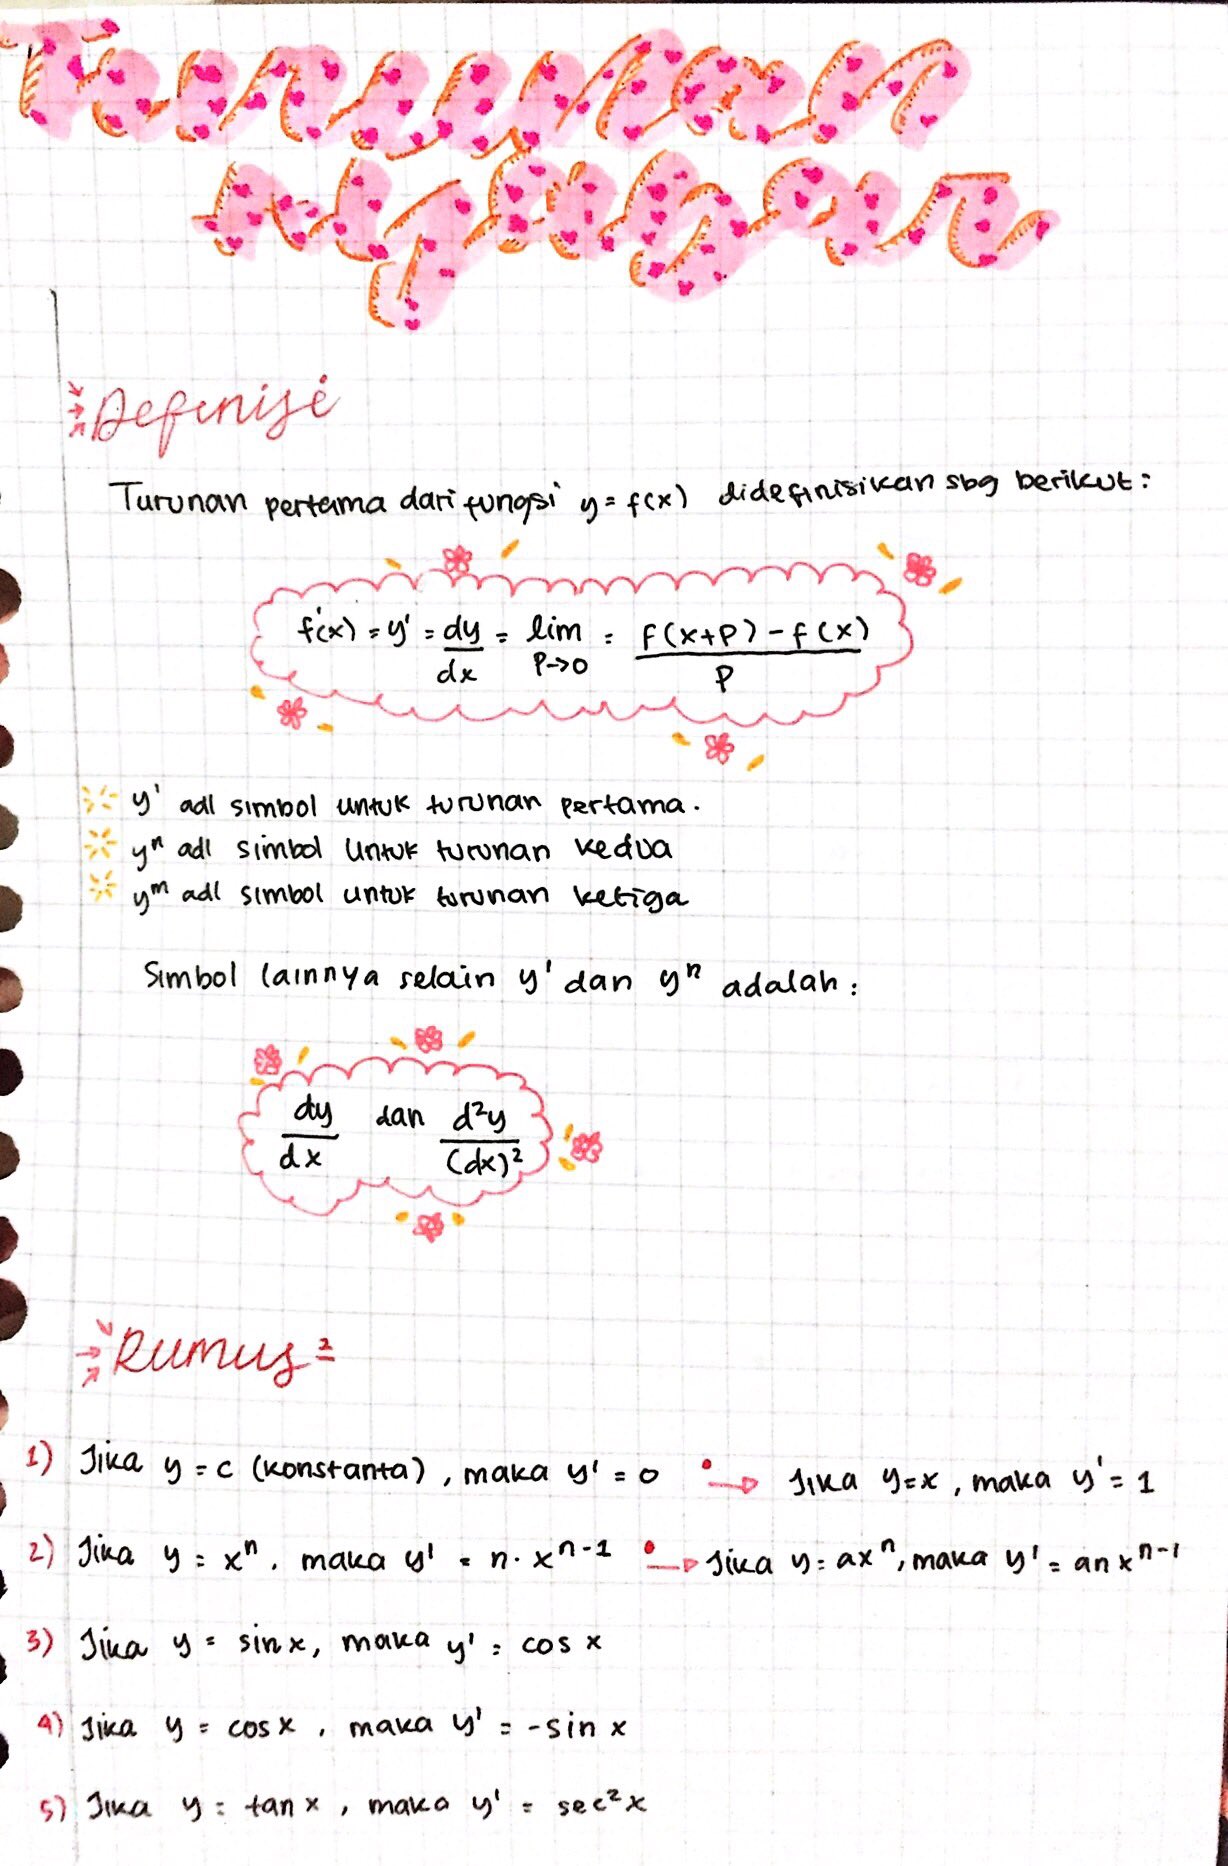 Turunan
aljabar
Definisi
Turunan pertama dari fungsi y = f(x) didefinisikan sbg berikut:
f'(x) = y' = dy/dx = lim p→0 = f(x+p) - f(x) / p
y' adl simbol untuk turunan pertama.
yⁿ adl simbol untuk turunan kedua
yᵐ adl simbol untuk turunan ketiga
Simbol lainnya selain y' dan yⁿ adalah:
dy/dx dan d²y/(dx)²
Rumus²
1) Jika y = c (konstanta), maka y' = 0 → Jika y=x, maka y' = 1
2) Jika y = xⁿ. maka y' = n. xⁿ⁻¹ → Jika y = axⁿ, maka y' = anxⁿ⁻¹
3) Jika y = sin x, maka y' = cos x
4) Jika y = cos x, maka y' = -sin x
5) Jika y = tan x, maka y' = sec²x